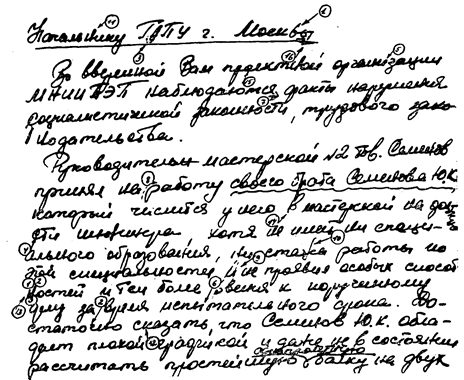 Начальнику ГАПУ г. Москвы
Во вверенной Вам проектной организации
МНИИТЭП наблюдаются факты нарушения
социалистической законности, трудового зако-
нодательства.
Руководитель мастерской №2 тов. Семенов
принял на работу своего брата Семенова Ю.К.
который числится у него в мастерской на дол
сти инженера хотя не имел ни специ-
ального образования, ни стажа работы по
этой специальности, и не проявив особых способ
ностей и тем более рвения к порученному
делу за время испытательного срока. До-
статочно сказать, что Семенов Ю.К. обла-
дает плохой графикой и даже не в состоянии
рассчитать простейшую балку на двух